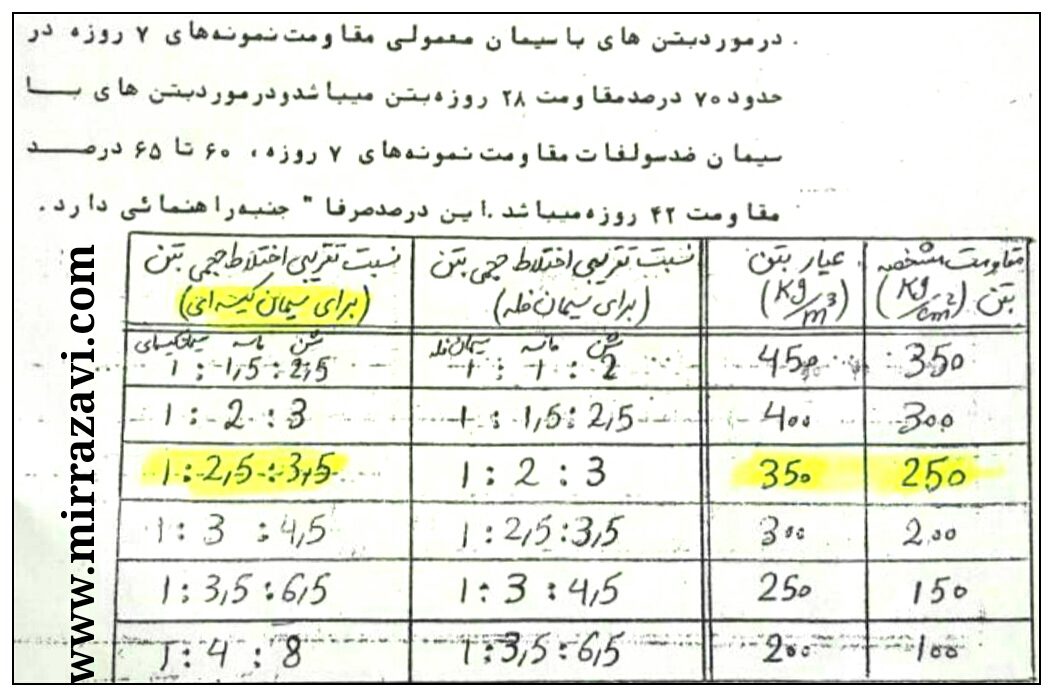 . درمورد بتن های با سیمان معمولی مقاومت نمونه‌های ۷ روزه در
حدود ۷۰ درصد مقاومت ۲۸ روزه بتن میباشد و در مورد بتن های بـــا
سیمان ضدسولفات مقاومت نمونه‌های ۷ روزه، ۶۰ تا ۶۵ درصـــد
مقاومت ۴۲ روزه میباشد. این درصد صرفا " جنبه راهنمائی دارد.
مقاومت مشخصه بتن (Kg/cm²) عیار بتن (Kg/m³) نسبت تقریبی اختلاط حجمی بتن (برای سیمان فله) نسبت تقریبی اختلاط حجمی بتن (برای سیمان کیسه‌ای)
شن ماسه سیمان فله شن ماسه سیمان کیسه‌ای
350 450 1 : 1 : 2 1 : 1,5 : 2,5
300 400 1 : 1,5 : 2,5 1 : 2 : 3
250 350 1 : 2 : 3 1 : 2,5 : 3,5
200 300 1 : 2,5 : 3,5 1 : 3 : 4,5
150 250 1 : 3 : 4,5 1 : 3,5 : 6,5
100 200 1 : 3,5 : 6,5 1 : 4 : 8
www.mirrazavi.com